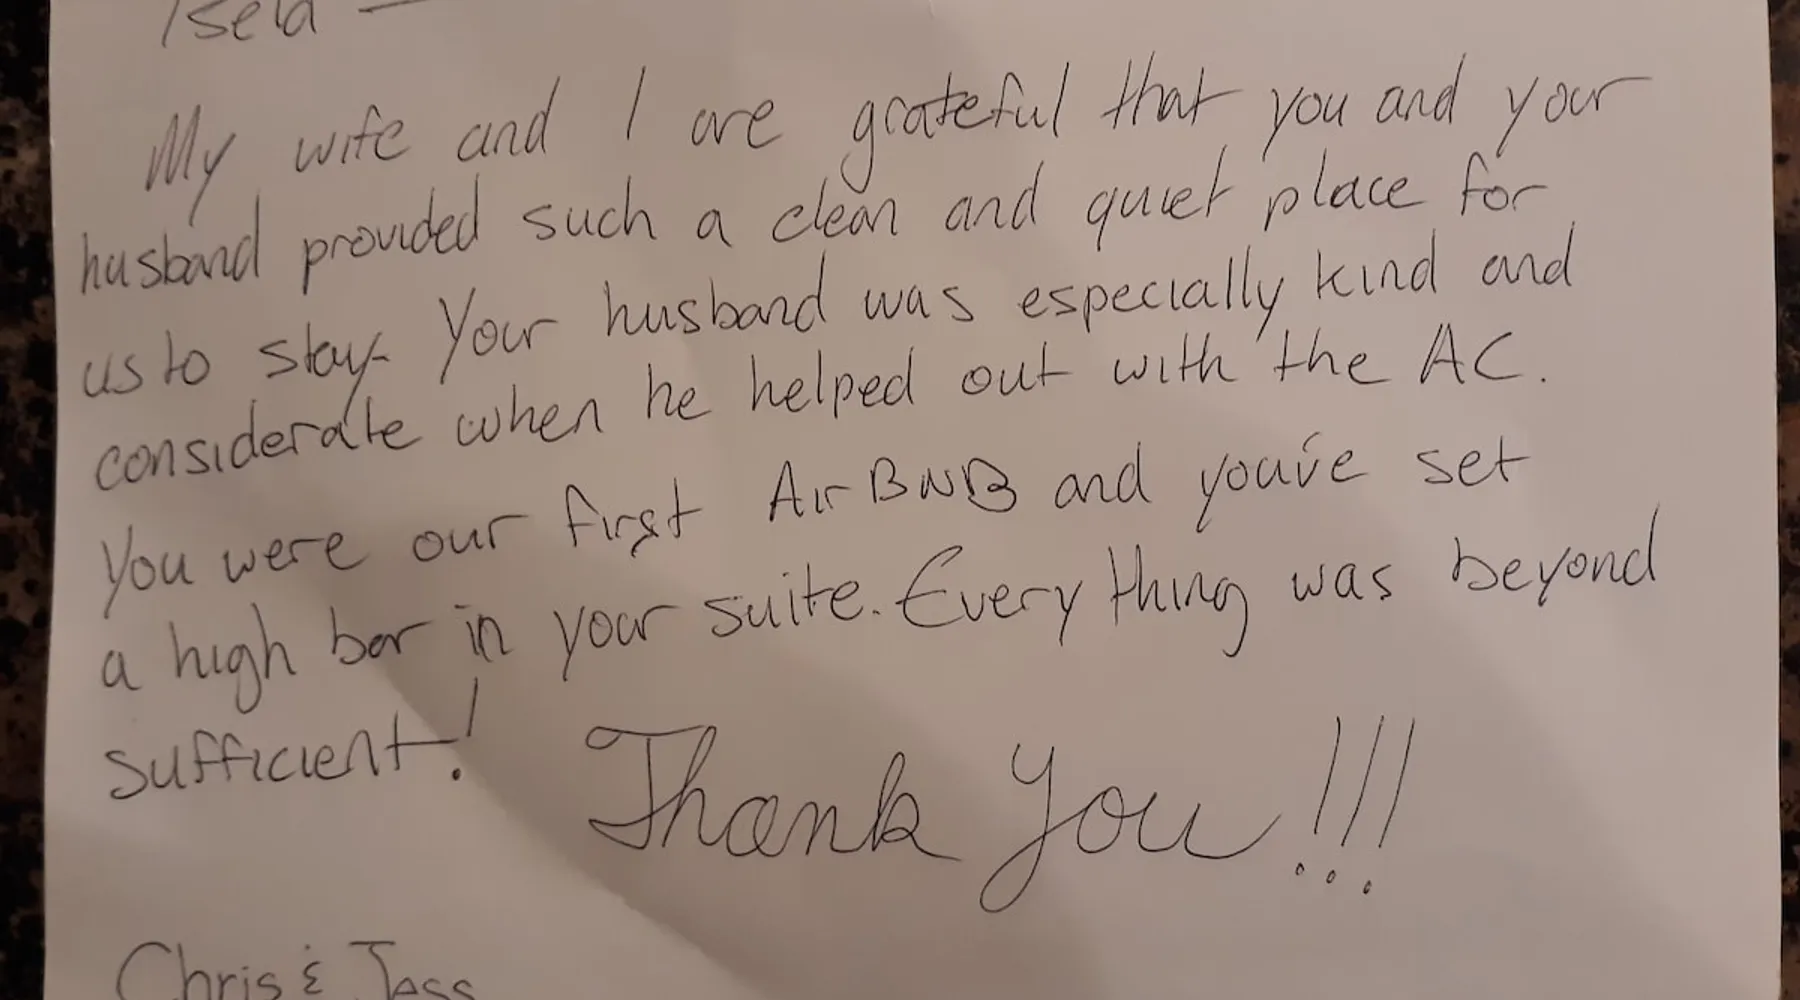 Isela —
My wife and I are grateful that you and your
husband provided such a clean and quiet place for
us to stay. Your husband was especially kind and
considerate when he helped out with the AC.
You were our first AirBNB and you've set
a high bar in your suite. Every thing was beyond
sufficient! Thank You!!!
Chris & Jess